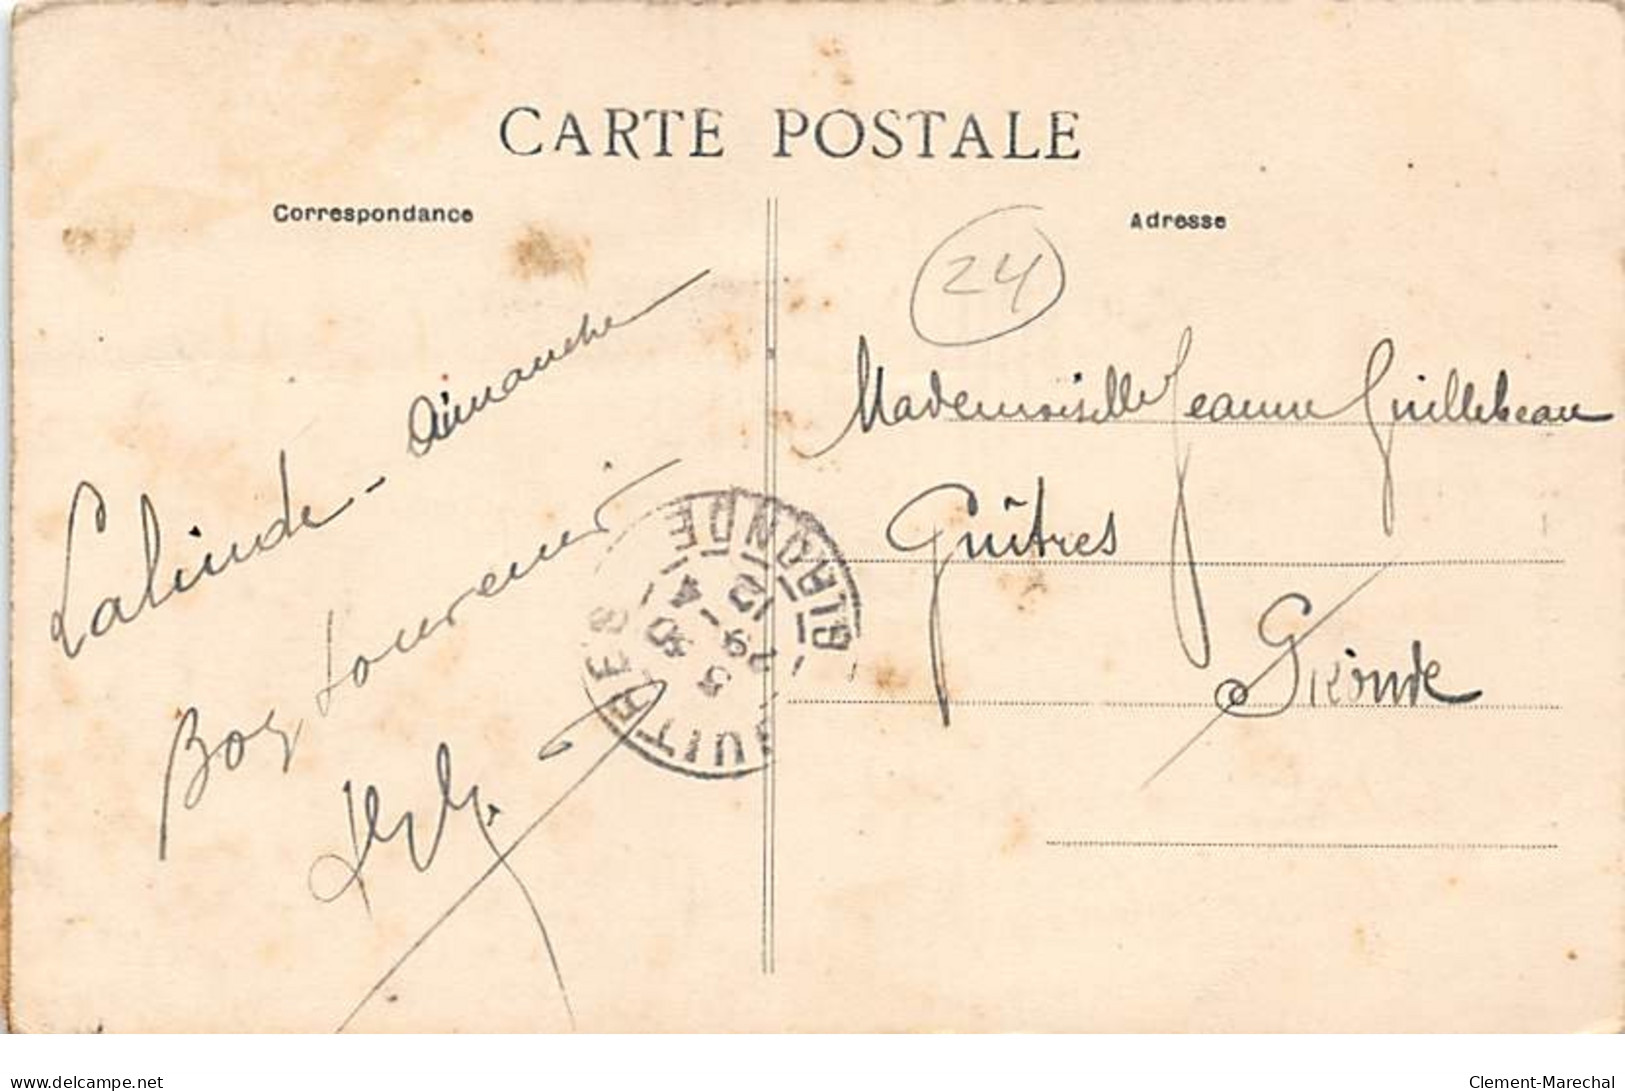 CARTE POSTALE
Correspondance
Adresse
24
Lalinde - dimanche
Bon souvenir
Mademoiselle Jeanne Guillebeau
Guîtres
Gironde
GUITRES
GIRONDE
www.delcampe.net
Clement-Marechal